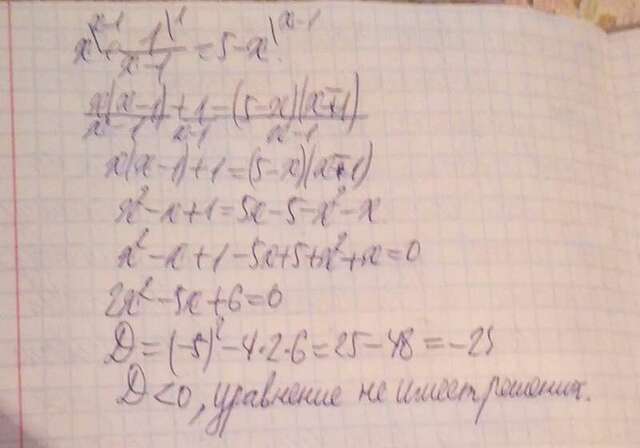 x\ˣ⁻¹ + 1\¹/(x-1) = 5-x\ˣ⁻¹
x(x-1)/(x-1) + 1/(x-1) = (5-x)(x-1)/(x-1)
x(x-1)+1=(5-x)(x-1)
x²-x+1=5x-5-x²-x
x²-x+1-5x+5+x²+x=0
2x²-5x+6=0
D=(-5)²-4·2·6=25-48=-23
D<0, уравнение не имеет решения.